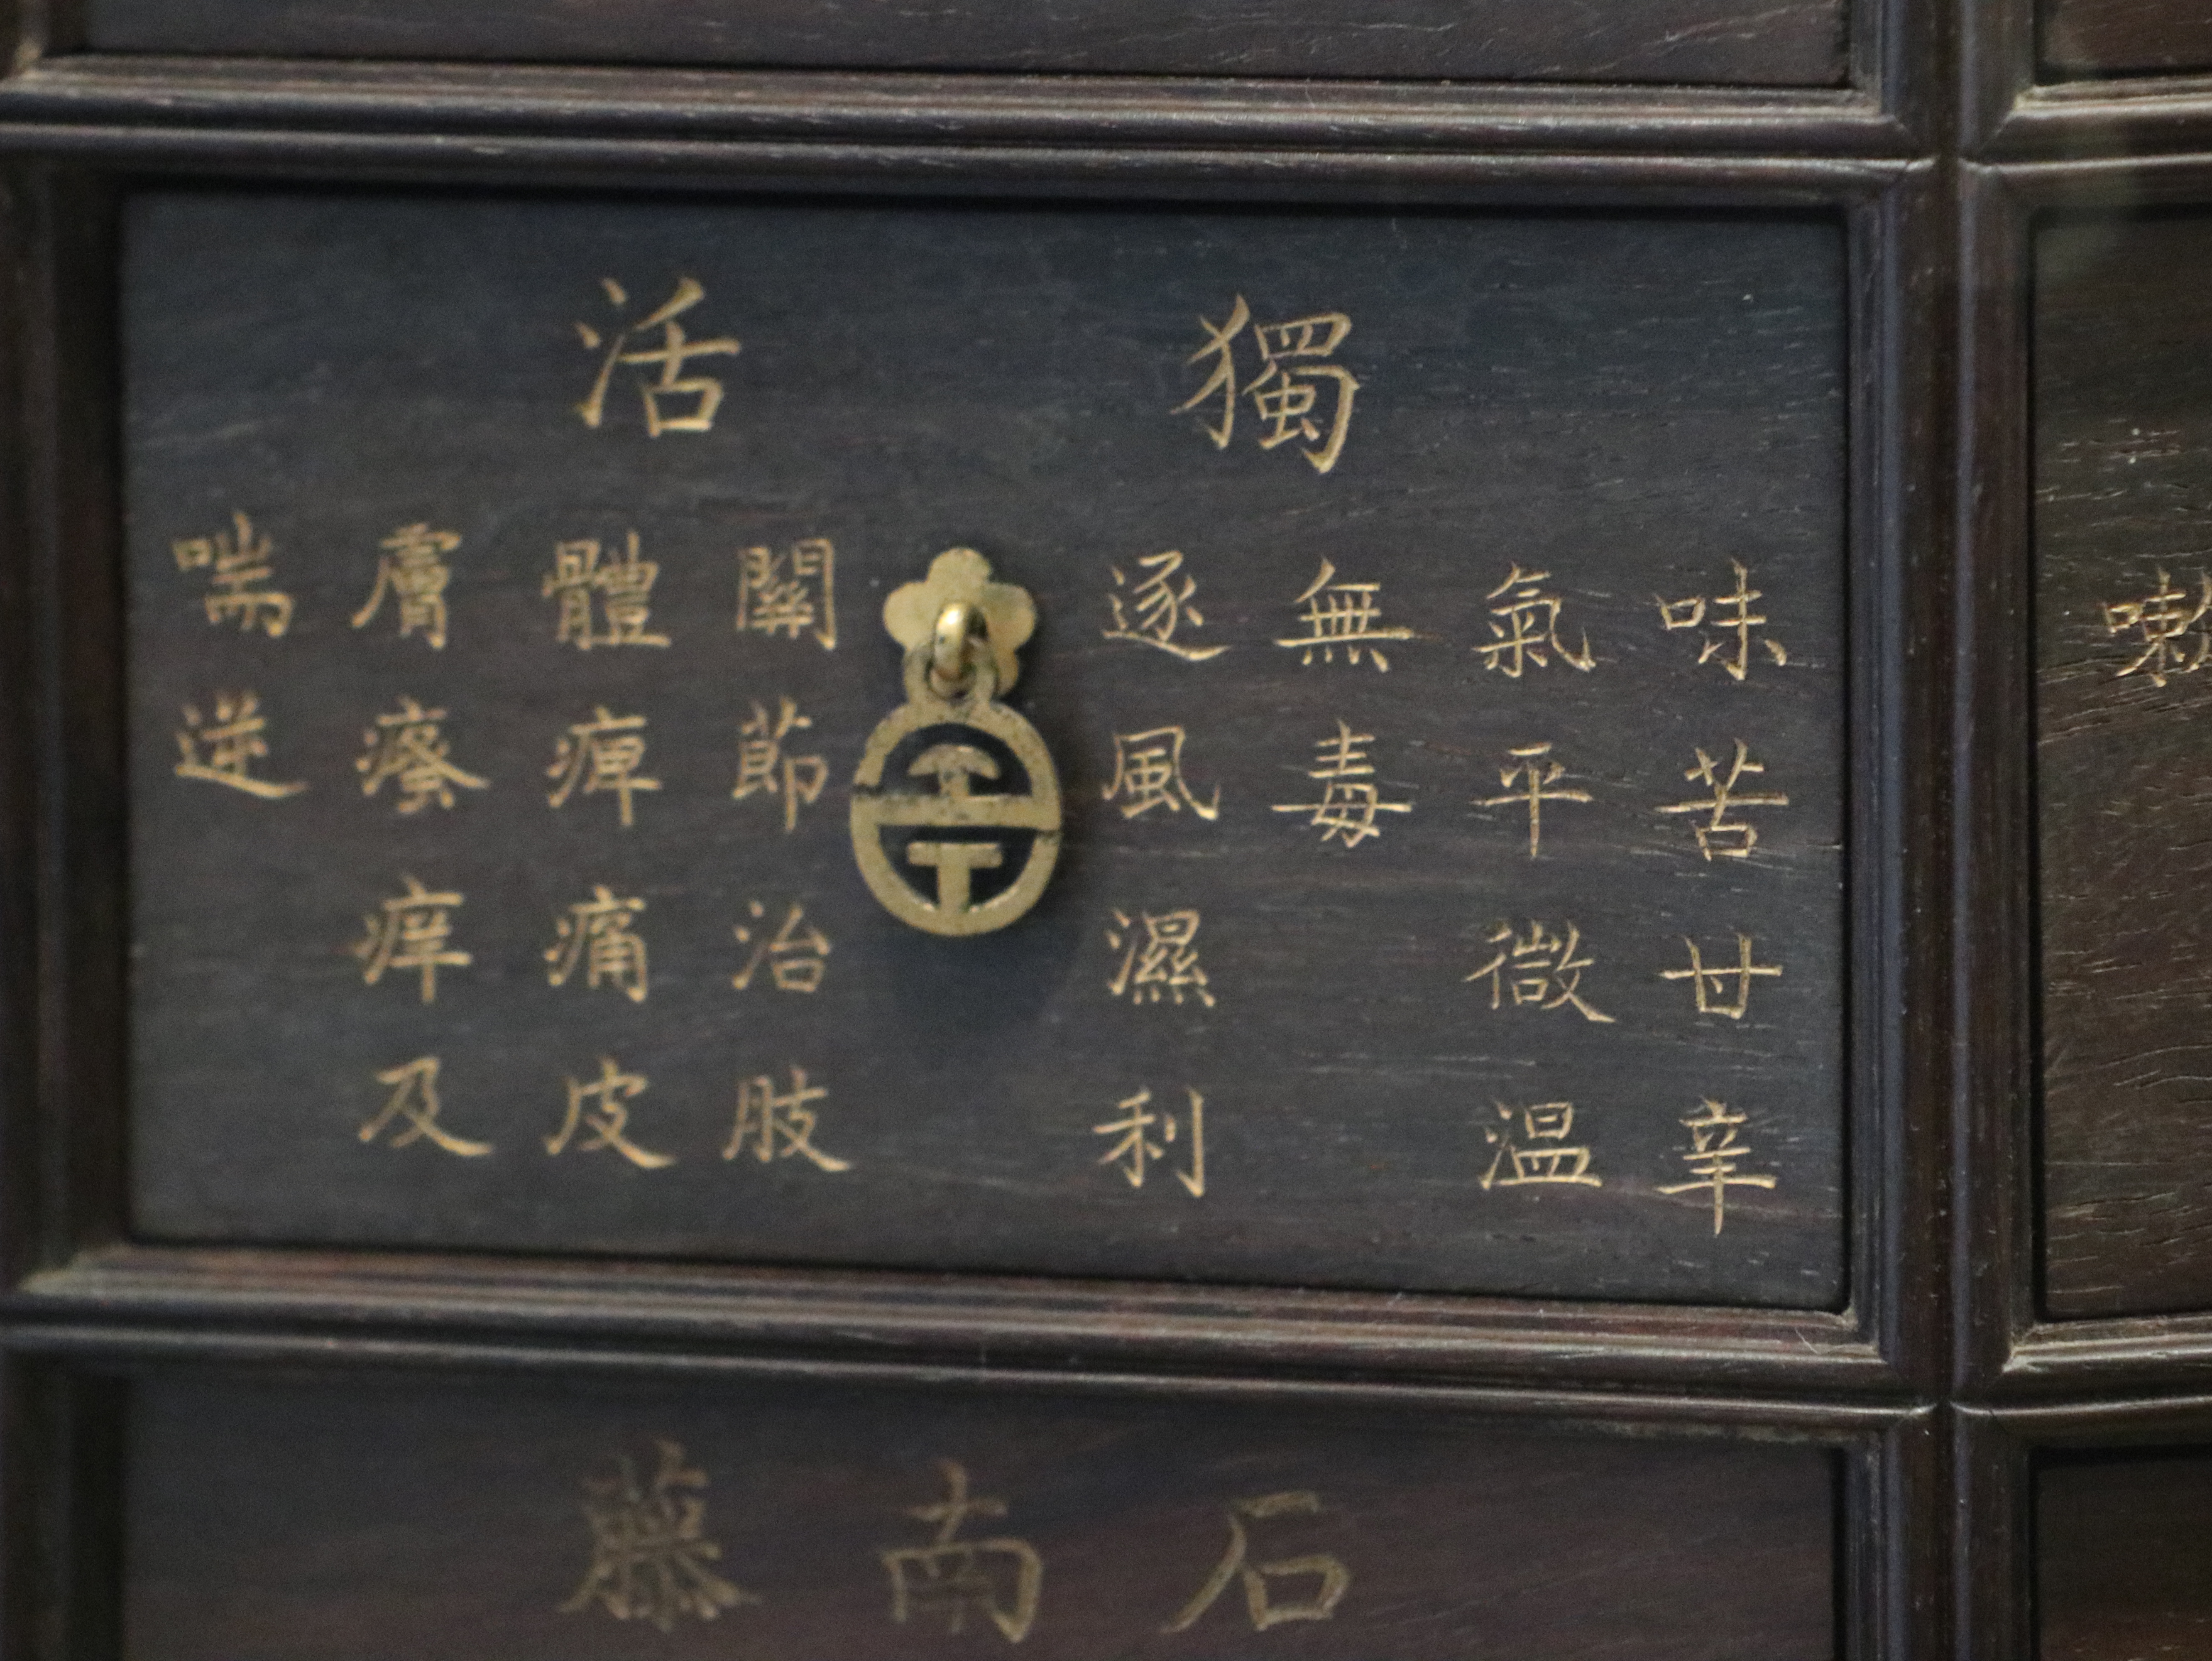 獨活
味苦甘辛
氣平微温
無毒
逐風濕利
關節治肢
體痺痛皮
膚瘙痒及
喘逆
石南藤
嗽